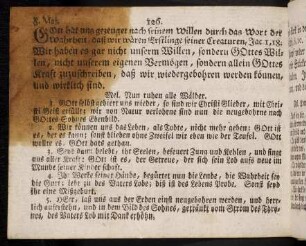 8. May. 126.
Er hat uns gezeuget nach seinem Willen durch das Wort der
Wahrheit, daß wir wären Erstlinge seiner Creaturen, Jac. 1, 18.
Wir haben es gar nicht unserm Willen, sondern GOttes Wil-
len, nicht unserem eigenen Vermögen, sondern allein GOttes
Kraft zuzuschreiben, daß wir wiedergebohren werden können,
und wirklich sind.
Mel. Nun ruhen alle Wälder.
1. GOtt selbst gebieret uns wieder, so sind wir Christi Glieder, mit
Geist erfüllt; wir von Natur verlohrne sind nun die eingebohrne nach
GOttes Sohnes Ebenbild.
2. Wir können uns das Leben, als Todte, nicht mehr geben: GOtt ist
es, der es kann; sonst blieben ohne Zweifel wir eben wie der Teufel. GOtt
wollte es, GOtt hats gethan.
3. belebe, die Seelen, befeuert Zung und Kehlen, und singt
aus aller Kraft: GOtt ist es, der Getreue, der sich sein Lob aufs neue im
Munde seiner Kinder schafft.
4. Ihr Werke seiner Hände, begürtet nun die Lende, die Wahrheit sey
die Gurt; lebt zu des Vaters Lobe; diß ist des Lebens Probe. Sonst seyd
ihr eine Mißgeburt.
5. HErr, laß uns aus der Erden einst neugebohren werden, und herr-
lich auferstehn, und in dem Bild des Sohnes, getränkt vom Strom des Thro-
nes, des Vaters Lob mit Dank erhöhn.